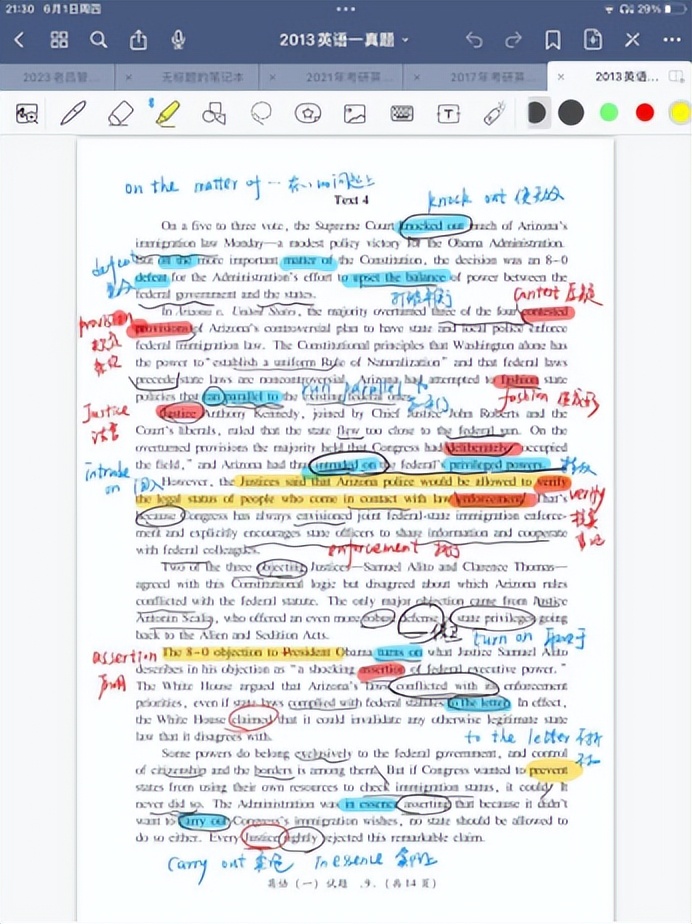 21:30 6月1日周四
29%
2013英语一真题
2023名吕管... 无标题的笔记本 2021年考研英... 2017年考研英... 2013英语...
on the matter of 在…问题上
knock out 使无效
Text 4
On a five to three vote, the Supreme Court knocked out much of Arizona's
immigration law Monday—a modest policy victory for the Obama Administration.
But on the more important matter of the Constitution, the decision was an 8-0
defeat
defeat for the Administration's effort to upset the balance of power between the
federal government and the states.
打破平衡
In Arizona v. United States, the majority overturned three of the four contested
provisions of Arizona's controversial plan to have state and local police enforce
provision
federal immigration law. The Constitutional principles that Washington alone has
the power to "establish a uniform Rule of Naturalization" and that federal laws
precede state laws are noncontroversial. Arizona had attempted to fashion state
run parallel to
policies that ran parallel to the existing federal ones.
fashion
Justice
法官
Justice Anthony Kennedy, joined by Chief Justice John Roberts and the
Court's liberals, ruled that the state flew too close to the federal sun. On the
overturned provisions the majority held that Congress had deliberately occupied
the field," and Arizona had thus intruded on the federal's privileged powers.
intrude
on
However, the Justices said that Arizona police would be allowed to verify
the legal status of people who come in contact with law enforcement. That's
verify
because Congress has always envisioned joint federal-state immigration enforce-
ment and explicitly encourages state officers to share information and cooperate
with federal colleagues.
enforcement
Two of the three objecting Justices—Samuel Alito and Clarence Thomas—
agreed with this Constitutional logic but disagreed about which Arizona rules
conflicted with the federal statute. The only major objection came from Justice
Antonin Scalia, who offered an even more robust defense of state privileges going
back to the Alien and Sedition Acts.
turn on
assertion
The 8-0 objection to President Obama turns on what Justice Samuel Alito
describes in his objection as "a shocking assertion of federal executive power."
The White House argued that Arizona's laws conflicted with its enforcement
priorities, even if state laws complied with federal statutes to the letter. In effect,
the White House claimed that it could invalidate any otherwise legitimate state
law that it disagrees with.
to the letter
Some powers do belong exclusively to the federal government, and control
of citizenship and the borders is among them. But if Congress wanted to prevent
states from using their own resources to check immigration status, it could. It
never did so. The Administration was in essence asserting that because it didn't
want to carry out Congress's immigration wishes, no state should be allowed to
do so either. Every Justice rightly rejected this remarkable claim.
carry out 实施 In essence 实际上
英语（一）试题 .9.（共14页）